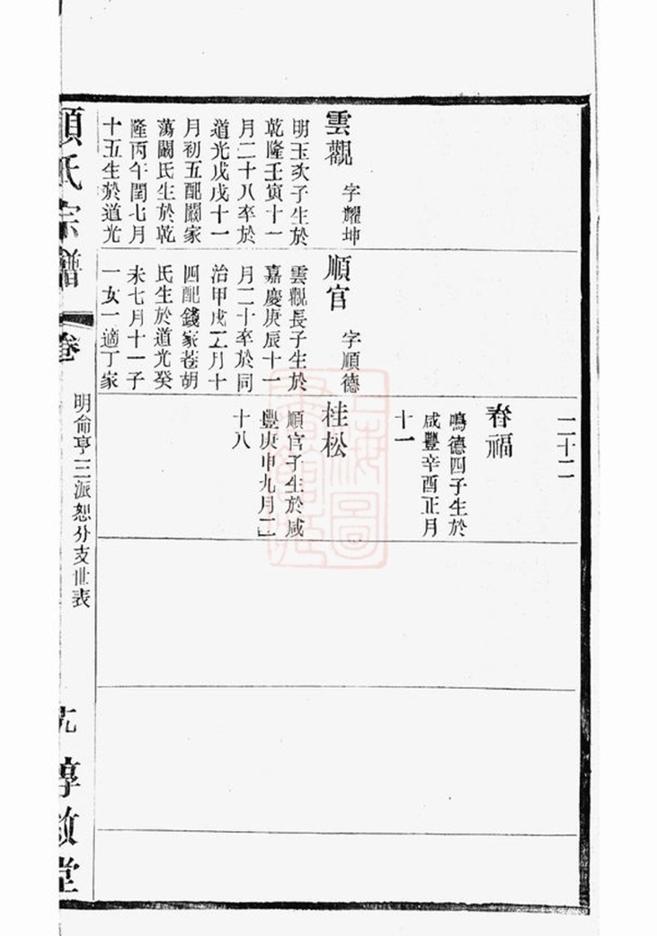 二十二
春福
鳴德四子生於
咸豐辛酉正月
十一
雲觀 字耀坤
明玉次子生於
乾隆壬寅十一
月二十八卒於
道光戊戌十一
月初五配闞家
蕩闞氏生於乾
隆丙午閏七月
十五生於道光
順官 字順德
雲觀長子生於
嘉慶庚辰十一
月二十卒於同
治甲戌二月十
四配錢家巷胡
氏生於道光癸
未七月十一子
一女一適丁家
桂松
順官子生於咸
豐庚申九月二
十八
氏宗譜
卷
明侖亨三派恕分支世表
堂